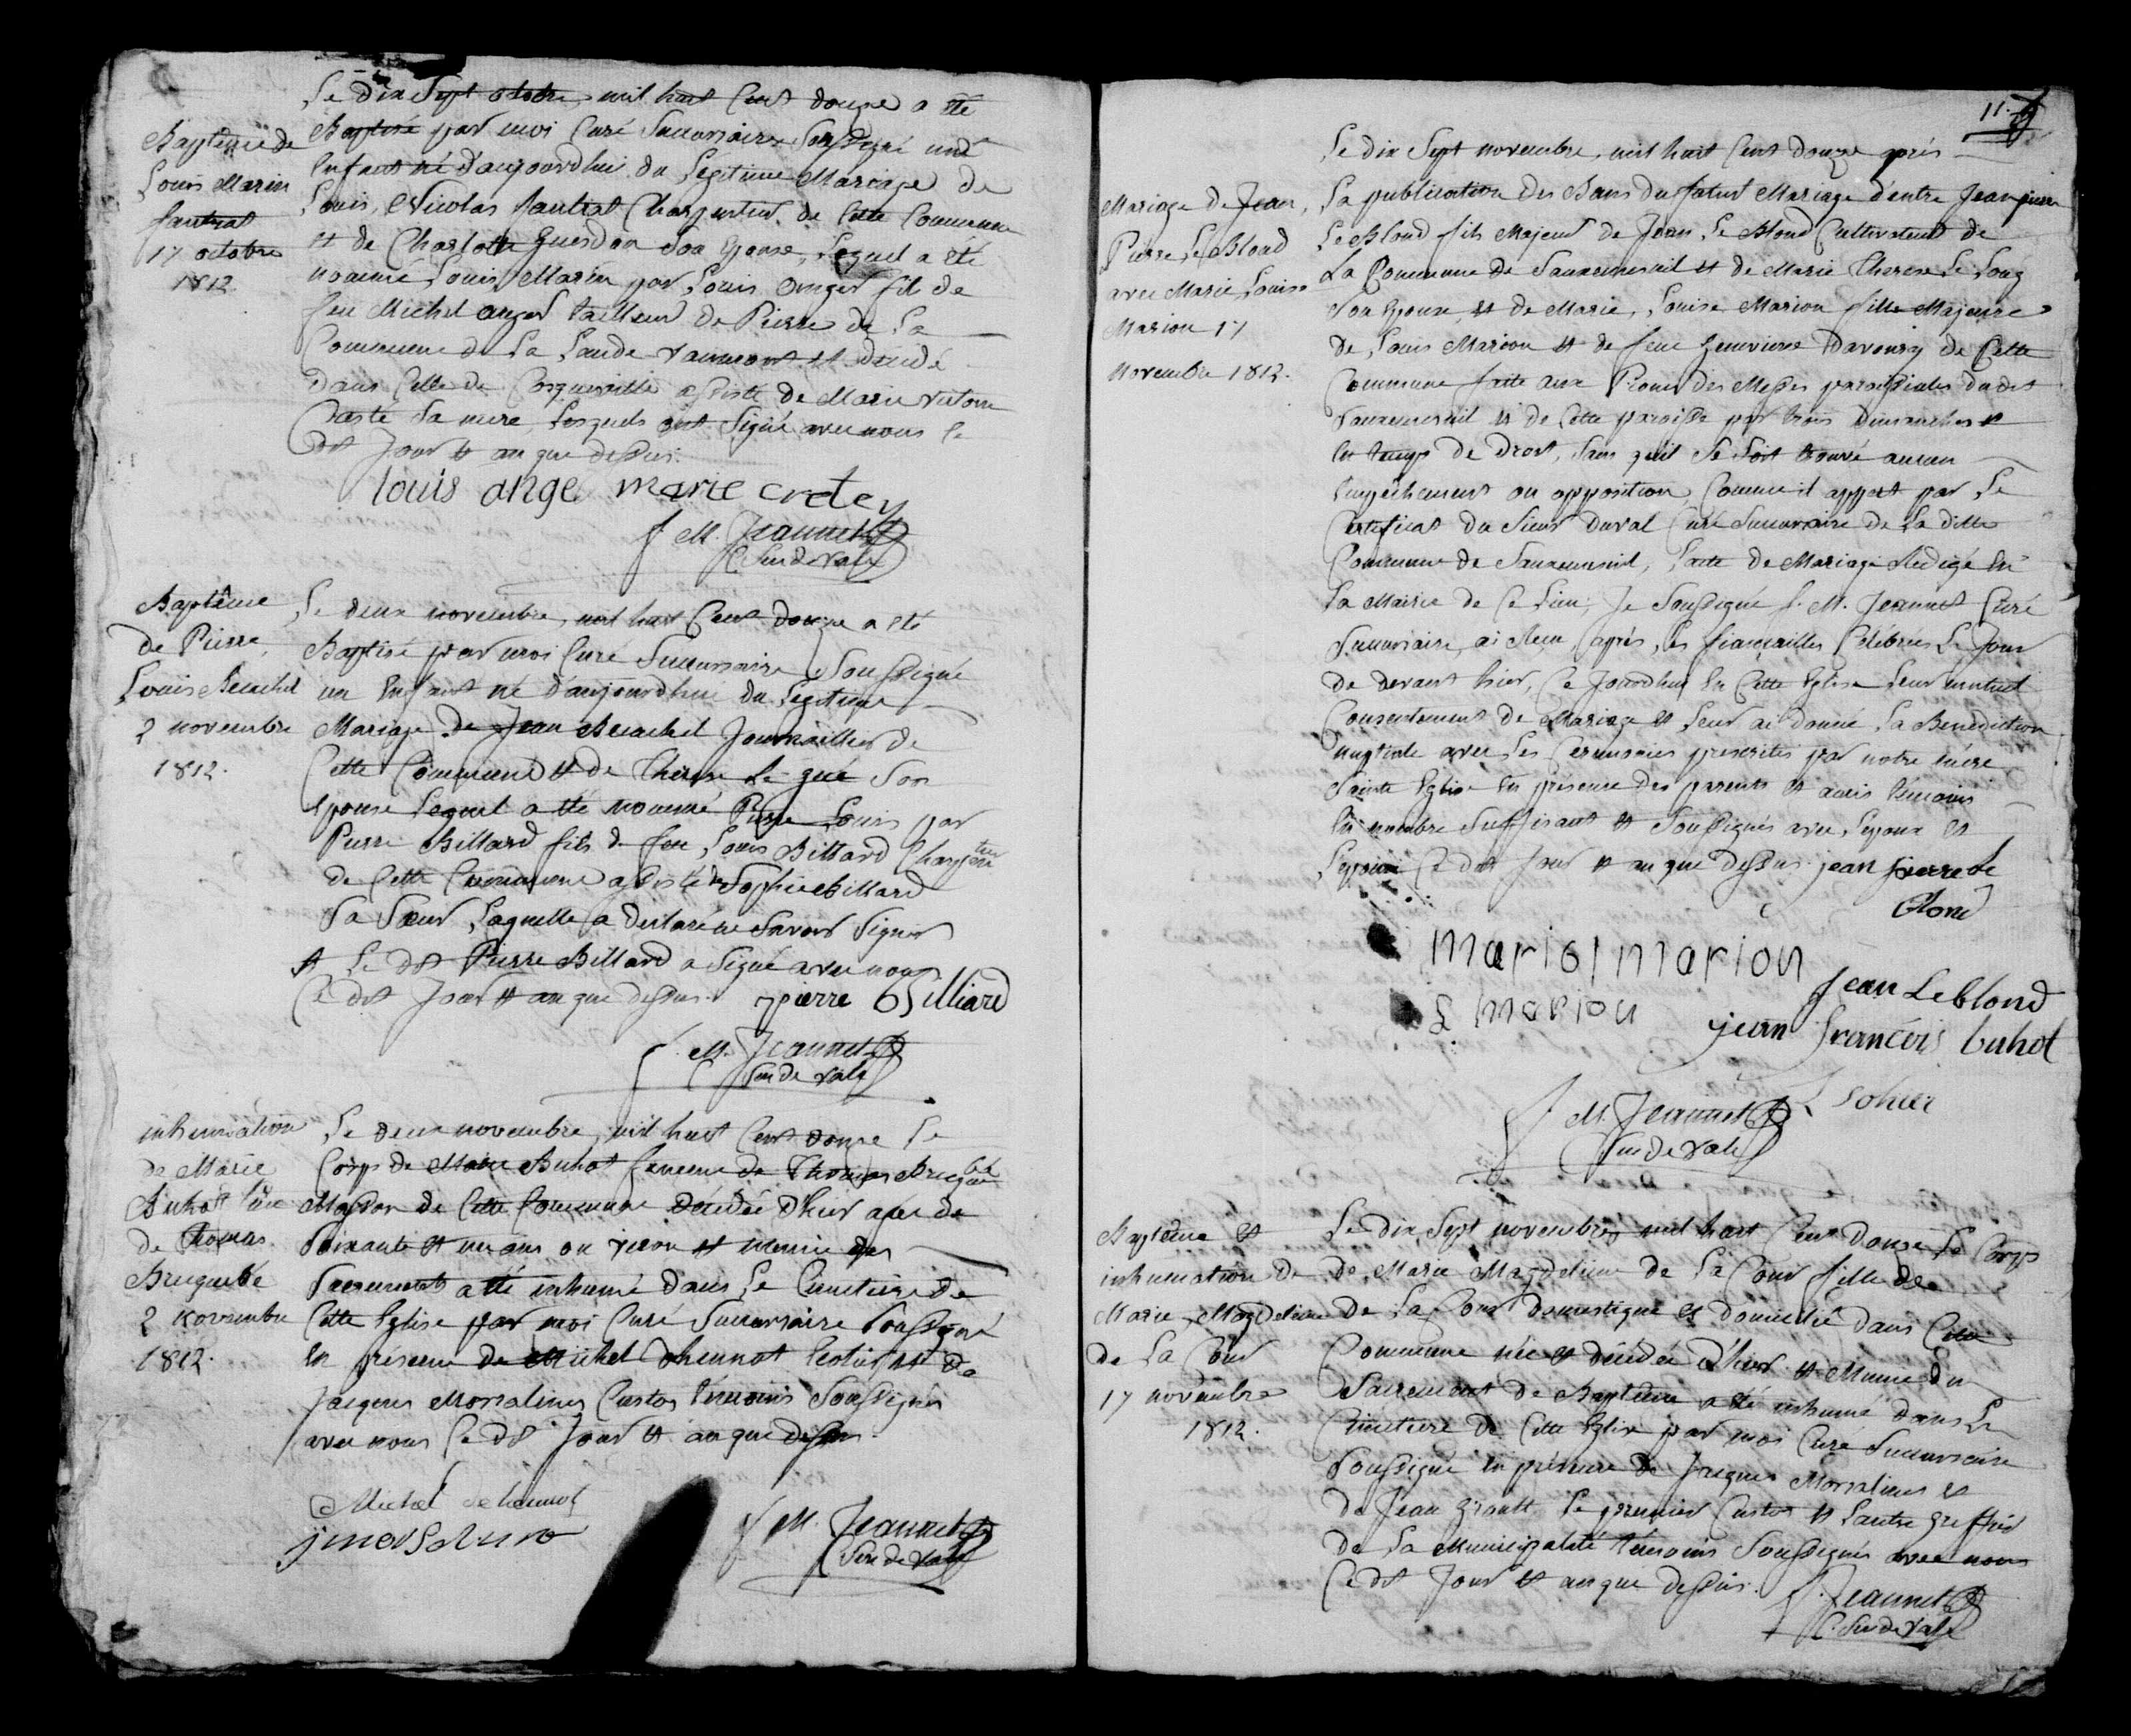 Baptême de
Louis Marin
fautrat
17 octobre
1812.
Le dix Sept octobre mil huit Cent douze a été
Baptisé par moi Curé Succursaire Soussigné une
Enfant né d'aujourdhui du Légitime Mariage de
Louis Nicolas fautrat Charpentier de Cette Commune
et de Charlotte Guesdon Son Epouse, Lequel a été
nommé Louis Marin par Louis Anger fils de
feu Michel anger tailleur de Pierre de La
Commune de La Lande Vaumont et
dans Celle de assisté de Marie
Sa mere, Lesquels ont Signé avec nous Ce
dit Jour et an que dessus.
louis ange marie cretey
f M. Jeannet
C. Sur de Vale
Baptême
de Pierre
Louis
2 novembre
1812.
Le deux novembre, mil huit Cent douze a été
Baptisé par moi Curé Succursaire Soussigné
un Enfant né d'aujourdhui du Légitime
Mariage de Jean Journaillier de
Cette Commune et de Therese Le gué Son
Epouse Lequel a été nommé Pierre Louis par
Pierre Billard fils de feu Louis Billard Charpentier
de Cette Commune assisté de Sophie Billard
Sa Sœur Laquelle a declaré ne Savoir Signer
et Le dit Pierre Billard a Signé avec nous
Ce dit Jour et an que dessus. pierre Billiard
f. M. Jeannet
C Sur de Vale
inhumation
de Marie
Buhot
de Thomas
Bruquebé
2 novembre
1812.
Le deux novembre, mil huit Cent douze Le
Corps de Marie Buhot femme de Thomas
Masson de Cette Commune décédée d'hier agée de
Soixante et un ans ou viron et munie des
Sacrements a été inhumé dans Le Cimetiere de
Cette Eglise par moi Curé Succursaire Soussigné
En présence de Michel et de
Jacques Morsalines Custos témoins Soussignés
avec nous Ce dit Jour et an que dessus.
Michel
f M. Jeannet
C Sur de Vale
11.
Mariage de Jean,
Pierre Le Blond
avec Marie Louise
Marion 17
Novembre 1812.
Le dix Sept novembre, mil huit Cent douze après
La publication des Bans du futur Mariage d'entre Jean pierre
Le Blond fils Majeur de Jean Le Blond Cultivateur de
La Commune de et de Marie Therese Le Long
Son Epouse, et de Marie, Louise Marion fille Majeure
de Louis Marion et de feue Genevieve Davoury de Cette
Commune faite aux Prones des Messes paroissiales dudit
et de Cette paroisse par trois Dimanches et
En temps de Droit, Sans quil Se Soit trouvé aucun
Empêchement ou opposition, Comme il appert par Le
Certificat du Sieur duval Curé Succursaire de La ditte
Commune de L'acte de Mariage Redigé En
La Mairie de Ce Lieu, Je Soussigné f. M. Jeannet Curé
Succursaire, ai Reçu, après Les fiançailles Célébrées Le Jour
de devant hier, Ce Jourdhui En Cette Eglise Leur mutuel
Consentement de Mariage et Leur ai donné La Benediction
nuptiale avec Les Ceremonies prescrites par notre mère
Sainte Eglise En présence des parents et amis témoins
En nombre Suffisant et Soussignés avec Lepoux et
Lepouse Ce dit Jour et an que dessus. jean pierre Le
blond
marion
L marion
Jean Leblond
jean françois buhot
L Sohier
f M. Jeannet
C Sur de Vale
Baptême et
inhumation de
Marie, Magdelaine
de La Cour
17 novembre
1812.
Le dix Sept novembre, mil huit Cent douze Le Corps
de Marie Magdelaine de La Cour fille de
de La Cour domestique et domicilié dans Cette
Commune née et décédée d'hier et Munie du
Sacrement de Baptême a été inhumé dans Le
Cimetiere de Cette Eglise par moi Curé Succursaire
Soussigné En présence de Jacques Morsalines et
de Jean Le premier Custos et L'autre Greffier
de La Municipalité témoins Soussignés avec nous
Ce dit Jour et an que dessus.
f. Jeannet
C. Sur de Vale